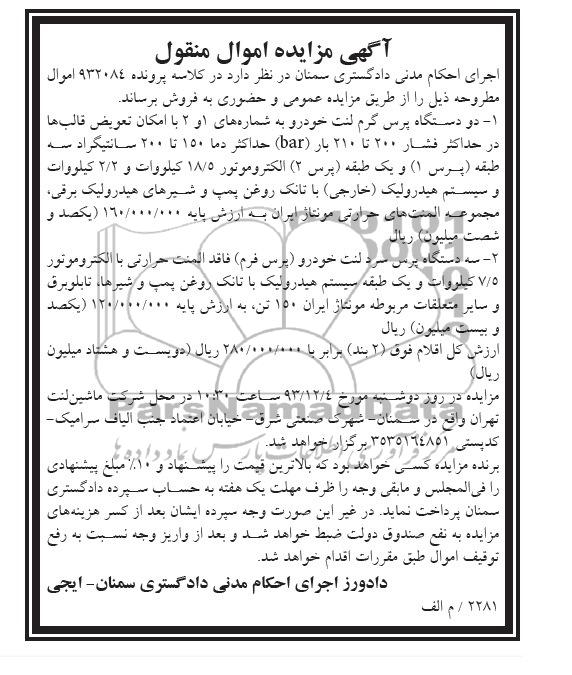 آگهی مزایده اموال منقول
اجرای احکام مدنی دادگستری سمنان در نظر دارد در کلاسه پرونده ۹۳۲۰۸۴ اموال
مطروحه ذیل را از طریق مزایده عمومی و حضوری به فروش برساند.
۱- دو دستگاه پرس گرم لنت خودرو به شماره‌های ۱و ۲ با امکان تعویض قالب‌ها
در حداکثر فشار ۲۰۰ تا ۲۱۰ بار (bar) حداکثر دما ۱۵۰ تا ۲۰۰ سانتیگراد سه
طبقه (پرس ۱) و یک طبقه (پرس ۲) الکتروموتور ۱۸/۵ کیلووات و ۲/۲ کیلووات
و سیستم هیدرولیک (خارجی) با تانک روغن پمپ و شیرهای هیدرولیک برقی،
مجموعه المنت‌های حرارتی مونتاژ ایران به ارزش پایه ۱۶۰/۰۰۰/۰۰۰ (یکصد و
شصت میلیون) ریال
۲- سه دستگاه پرس سرد لنت خودرو (پرس فرم) فاقد المنت حرارتی با الکتروموتور
۷/۵ کیلووات و یک طبقه سیستم هیدرولیک با تانک روغن پمپ و شیرها، تابلوبرق
و سایر متعلقات مربوطه مونتاژ ایران ۱۵۰ تن، به ارزش پایه ۱۲۰/۰۰۰/۰۰۰ (یکصد
و بیست میلیون) ریال
ارزش کل اقلام فوق (۲ بند) برابر با ۲۸۰/۰۰۰/۰۰۰ ریال (دویست و هشتاد میلیون
ریال)
مزایده در روز دوشنبه مورخ ۹۳/۱۲/۴ ساعت ۱۰:۳۰ در محل شرکت ماشین‌لنت
تهران واقع در سمنان- شهرک صنعتی شرق- خیابان اعتماد جنب الیاف سرامیک-
کدپستی ۳۵۳۵۱۶۴۸۵۱ برگزار خواهد شد.
برنده مزایده کسی خواهد بود که بالاترین قیمت را پیشنهاد و ۱۰٪ مبلغ پیشنهادی
را فی‌المجلس و مابقی وجه را ظرف مهلت یک هفته به حساب سپرده دادگستری
سمنان پرداخت نماید. در غیر این صورت وجه سپرده ایشان بعد از کسر هزینه‌های
مزایده به نفع صندوق دولت ضبط خواهد شد و بعد از واریز وجه نسبت به رفع
توقیف اموال طبق مقررات اقدام خواهد شد.
دادورز اجرای احکام مدنی دادگستری سمنان- ایجی
۲۲۸۱ / م الف
ParsNamadData